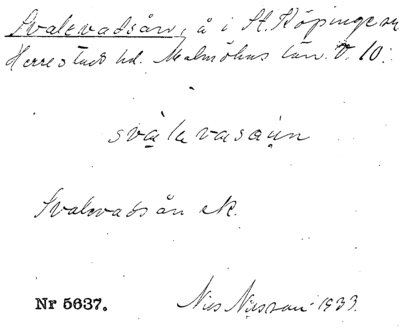 Svalevadsån, å i St. Köpinge sn
Herrestads hd. Malmöhus län. V. 10.
svalevasaun
Svalevadsån ek.
Nr 5637. Nils Nilsson 1933.